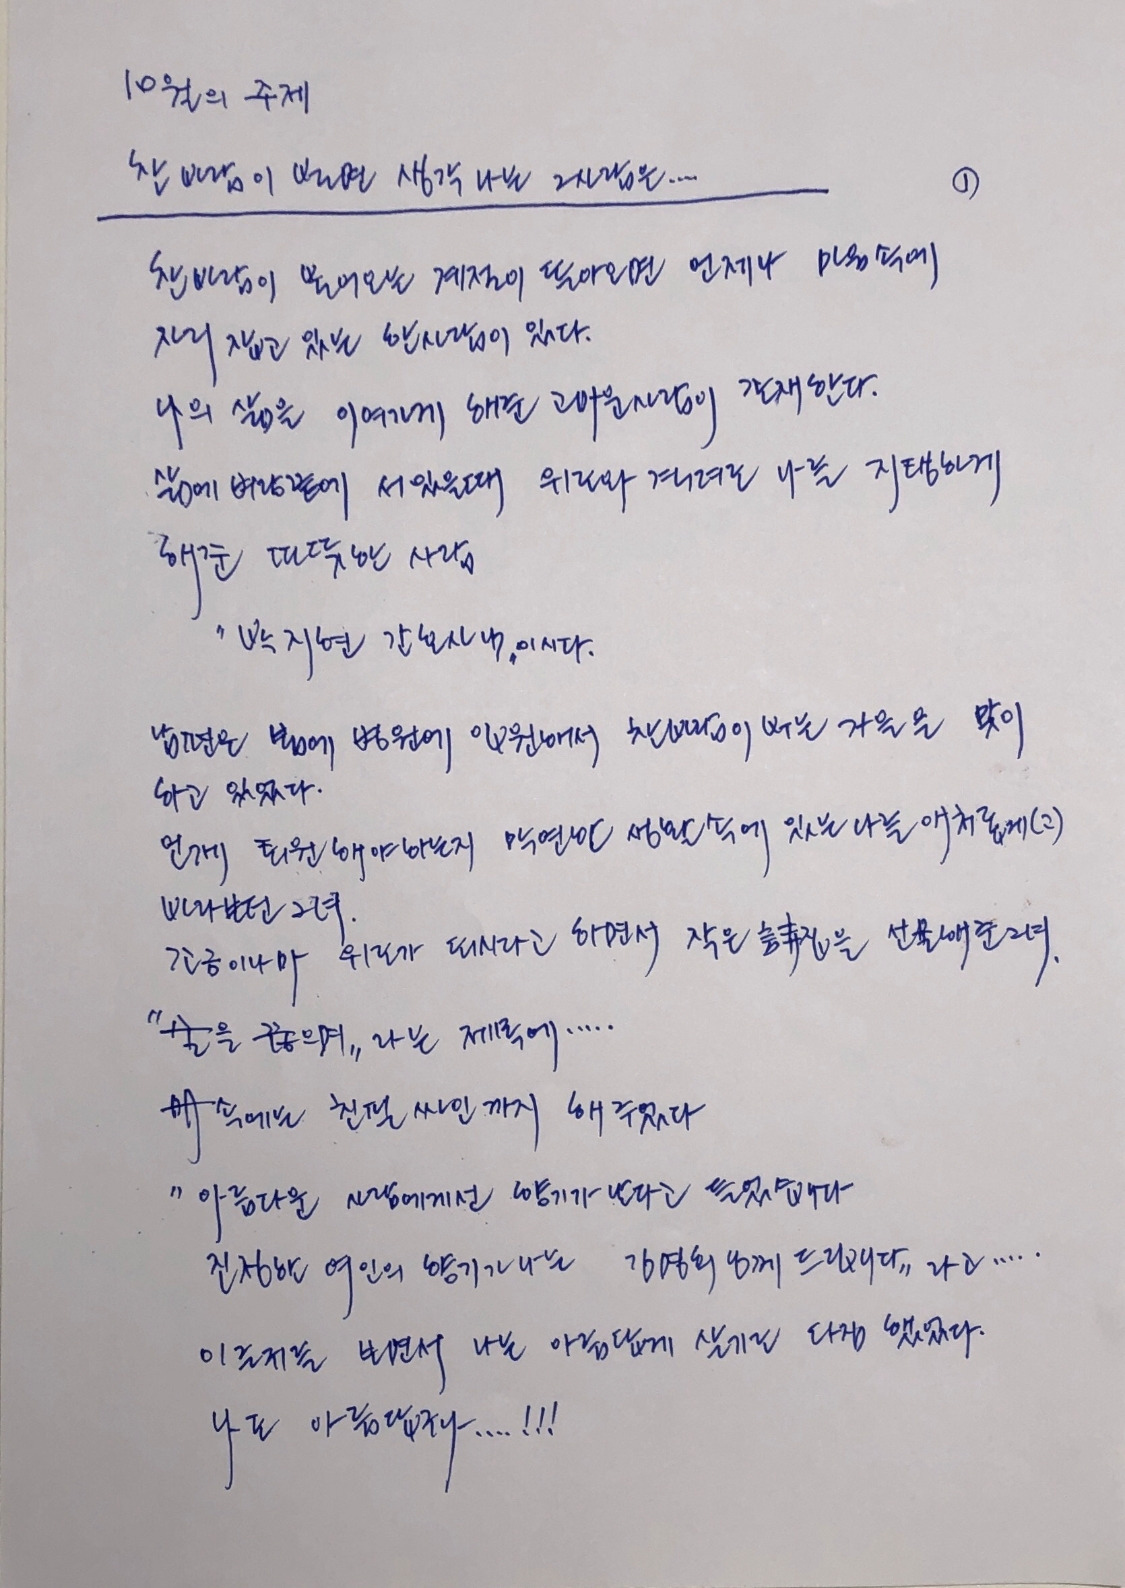 10월의 주제
찬 바람이 부르면 생각 나는 그사람은....
①
찬바람이 불어오는 계절이 돌아오면 언제나 마음속에
자리 잡고 있는 한사람이 있다.
나의 삶을 이여가게 해준 고마운사람이 존재한다.
삶에 벼랑끝에 서있을때 위로와 격려로 나를 지탱하게
해준 따뜻한 사람
"박지현 간호사님"이시다.
남편은 봄에 병원에 입원해서 찬바람이 부는 가을을 맞이
하고 있었다.
언제 퇴원해야하는지 막연한 생활속에 있는나를 애처롭게(고)
바라보던 그녀.
조금이나마 위로가 되시라고 하면서 작은 선물해준그녀.
라는 제목에.....
속에는 친필싸인까지 해주었다
"아름다운 사람에게선 향기가 난다고 들었습니다
진정한 여인의 향기가나는 김영희님께 드립니다" 라고.....
이글귀를 보면서 나는 아름답게 살기로 다짐했었다.
나도 아름답구나....!!!